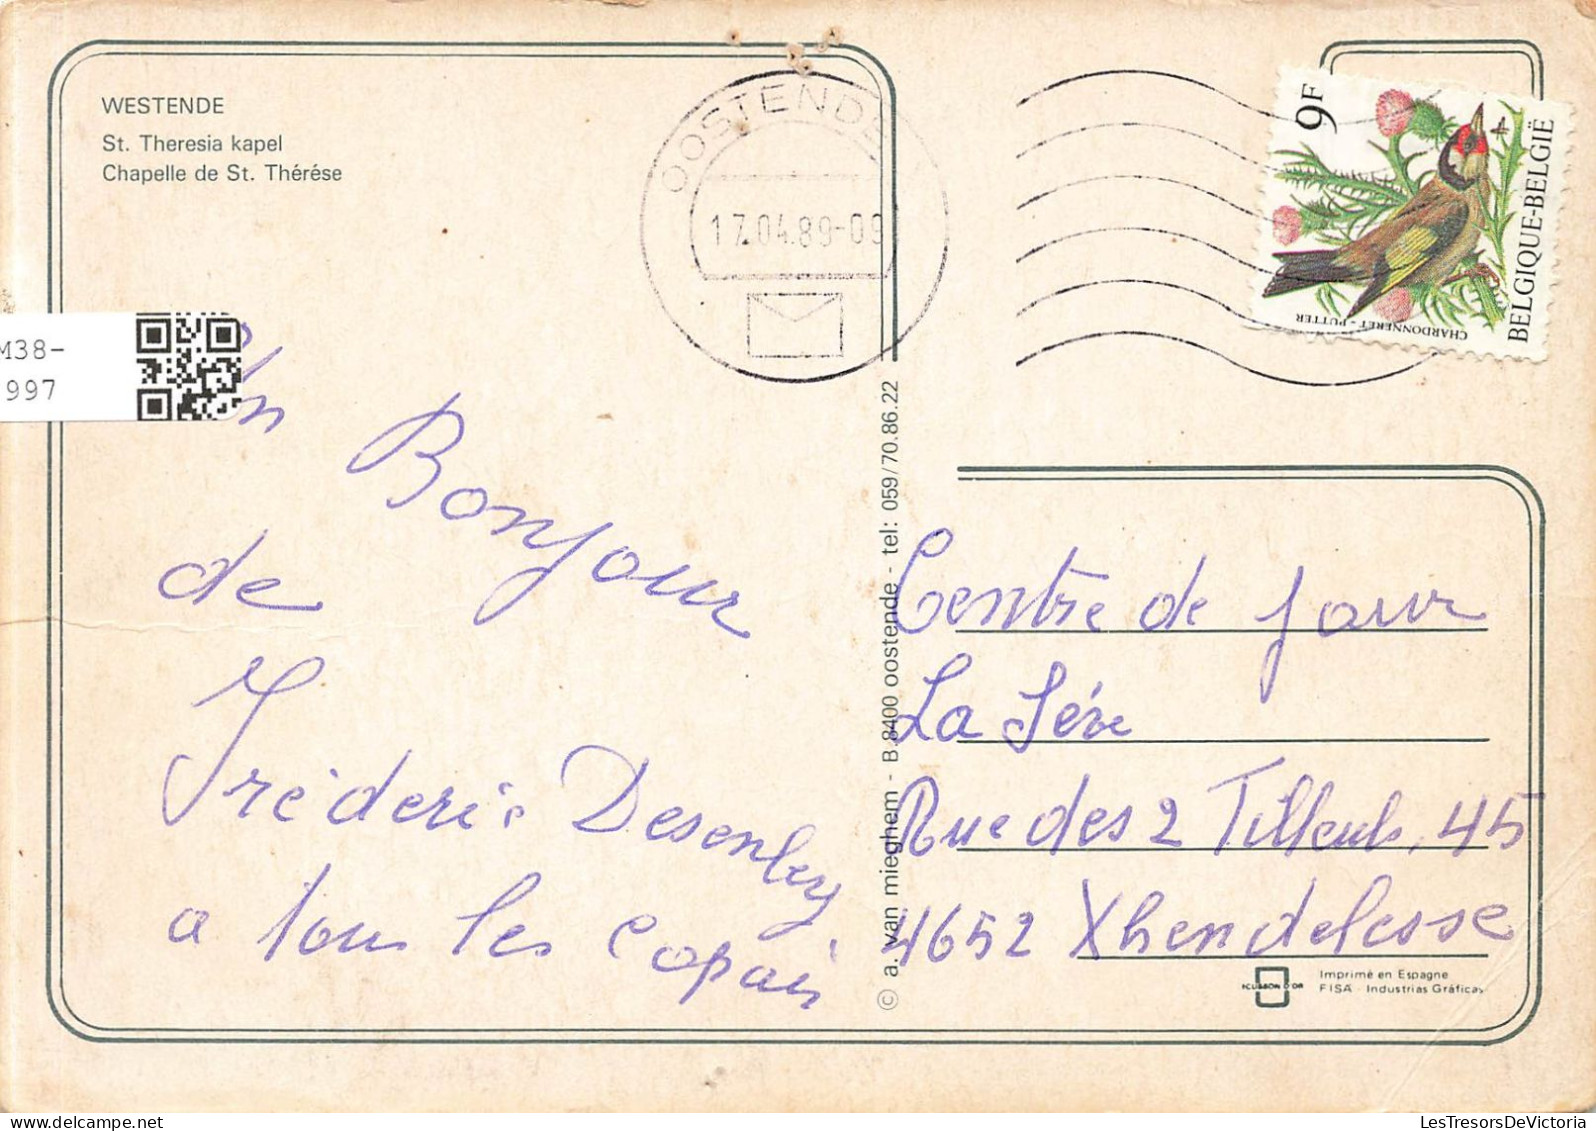 WESTENDE
St. Theresia kapel
Chapelle de St. Thérése
OOSTENDE
17.04.89-09
9F
BELGIQUE-BELGIË
CHARDONNERET - PUTTER
M38-
997
Un Bonjour
de
Fréderic Desenley
a tous les copain
© a. van mieghem - B.8400 oostende - tel: 059/70.86.22
Centre de jour
La Sève
Rue des 2 Tilleuls, 45
4652 Xhendelesse
ECUSSON D'OR
Imprimé en Espagne
FISA - Industrias Gráficas
LesTresorsDeVictoria